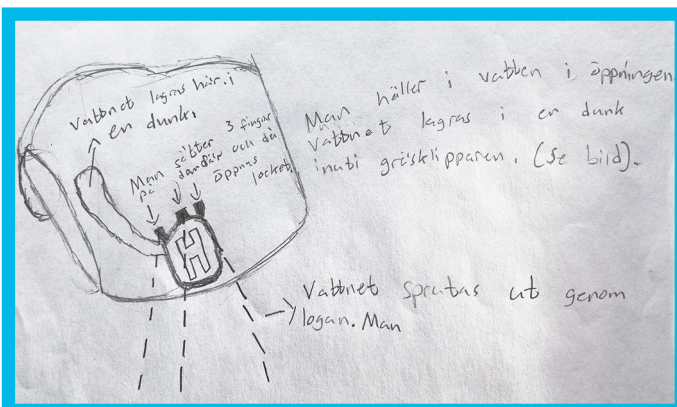 Vattnet lagras här i
en dunk.
Man sätter 3 fingrar
på där och då
öppnas
locket.
H
Man häller i vatten i öppningen
Vattnet lagras i en dunk
inuti gräsklipparen. (Se bild).
Vattnet sprutas ut genom
logan. Man